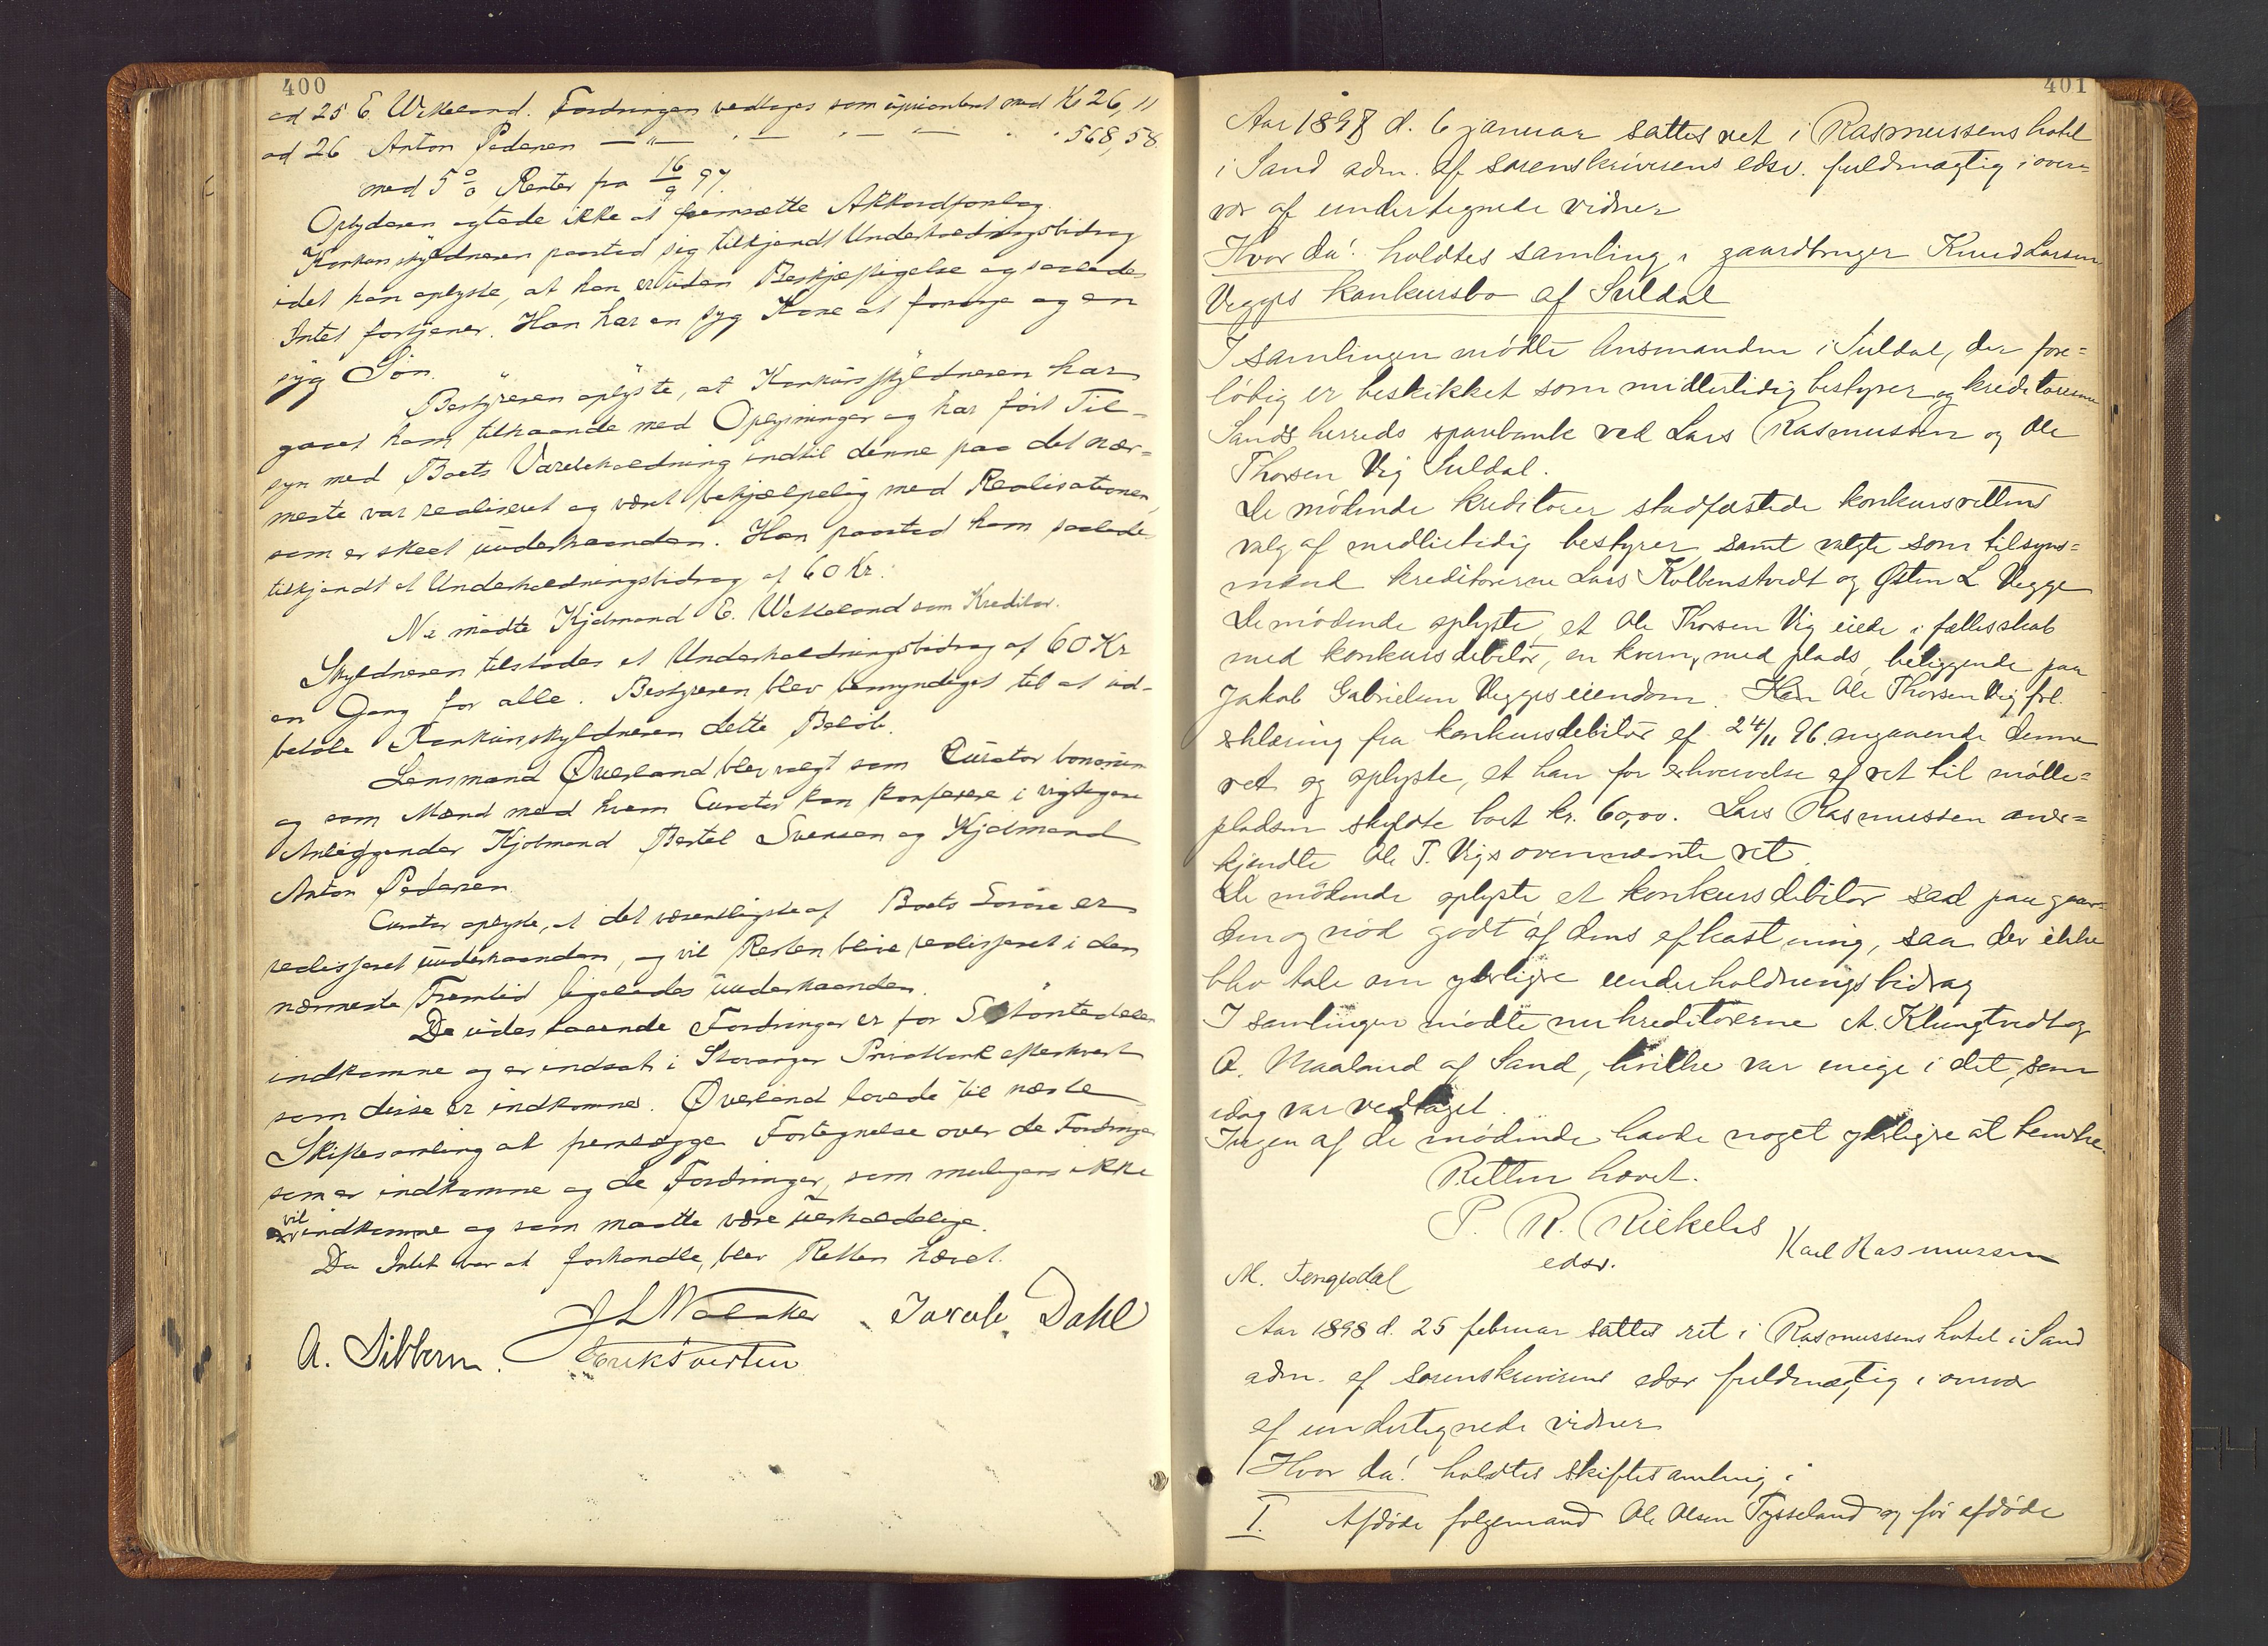 400
ad 25 E. Wetteland. Fordringen vedtages som uprioritert med Kr 26,11
ad 26 Anton Pedersen — " — " — " — " — " " 568,58
med 5 % Renter fra 16/9 97.
Opbyderen agtede ikke at fremsætte Akkordforslag.
Konkursskyldneren paastod sig tilkjendt Underholdningsbidrag
idet han oplyste, at han er uden Beskjæftigelse og saaledes
Intet fortjener. Han har en syg Kone at forsørge og en
syg Søn.
Bestyreren oplyste, at Konkursskyldneren har
gaaet ham tilhaande med Oplysninger og har ført Til-
syn med Boets Varebeholdning indtil denne paa det nær-
meste var realiseret og været behjælpelig med Realisationen,
som er skeet underhaanden. Han paastod ham saaledes
tilkjendt et Underholdningsbidrag af 60 Kr.
Nu mødte Kjøbmand E. Wetteland som Kreditor.
Skyldneren tilstodes et Underholdningsbidrag af 60 Kr
en Gang for alle. Bestyreren blev bemyndiget til at ud-
betale Konkursskyldneren dette Beløb.
Lensmand Øverland blev valgt som Curator bonorum
og som Mænd med hvem Curator kan konferere i vigtigere
Anliggender Kjøbmand Bertel Svensen og Kjøbmand
Anton Pedersen.
Curator oplyste, at det væsentligste af Boets Løsøre er
realiseret underhaanden, og vil Resten blive realiseret i den
nærmeste Fremtid ligeledes underhaanden.
De udestaaende Fordringer er for Størstedelen
indkomne og er indsat i Stavanger Privatbank efterhvert
som disse er indkomne. Øverland lovede til næste
Skiftesamling at fremlægge Fortegnelse over de Fordringer
som er indkomne og de Fordringer, som muligens ikke
vil indkomme og som maatte være uerholdelige.
Da Intet var at forhandle, blev Retten hævet.
J L Walaker Jakob Dahl
A. Sibbern. Erik Svertsen
401
Aar 1898 d. 6 januar sattes ret i Rasmussens hotel
i Sand adm. af sorenskriverens edsv. fuldmægtig i over=
vær af undertegnede vidner
Hvor da! holdtes samling i gaardbruger Knud Larsen
Vegges konkursbo af Suldal
I samlingen mødte lensmanden i Suldal, der fore=
løbig er beskikket som midlertidig bestyrer og kreditorerne
Sands herreds sparebank ved Lars Rasmussen og Ole
Thorsen Vig Suldal.
De mødende kreditorer stadfæstede konkursrettens
valg af midlertidig bestyrer samt valgte som tilsyns=
mænd kreditorerne Lars Kolbenstvedt og Østen L Vegge
De mødende oplyste, at Ole Thorsen Vig eiede i fællesskab
med konkursdebitor, en kvern, med plads, beliggende paa
Jakob Gabrielsen Vegges eiendom. Ole Thorsen Vig frl.
erklæring fra konkursdebitor af 24/11 96 angaaende denne
ret og oplyste, at han for erhvervelse af ret til mølle=
pladsen skyldte boet kr. 60,00. Lars Rasmussen aner=
kjendte Ole T. Vigs ovennævnte ret.
De mødende oplyste at konkursdebitor sad paa gaar=
den og nød godt af dens afkastning, saa der ikke
blev tale om yderligre underholdningsbidrag
I samlingen mødte nu kreditorerne A. Klungtvedt og
A. Maaland af Sand, hvilke var enige i det, som
idag var vedtaget.
Ingen af de mødende havde noget yderligre at bemerke.
Retten hævet.
P. R. Riekeles
edsv.
Karl Rasmussen
M. Tengesdal
Aar 1898 d. 25 februar sattes ret i Rasmussens hotel i Sand
adm. af sorenskriverens edsv fuldmægtig i overvær
af undertegnede vidner
Hvor da! holdtes skiftesamling i
I. Afdøde følgemand Ole Olsen Tysseland og før afdøde